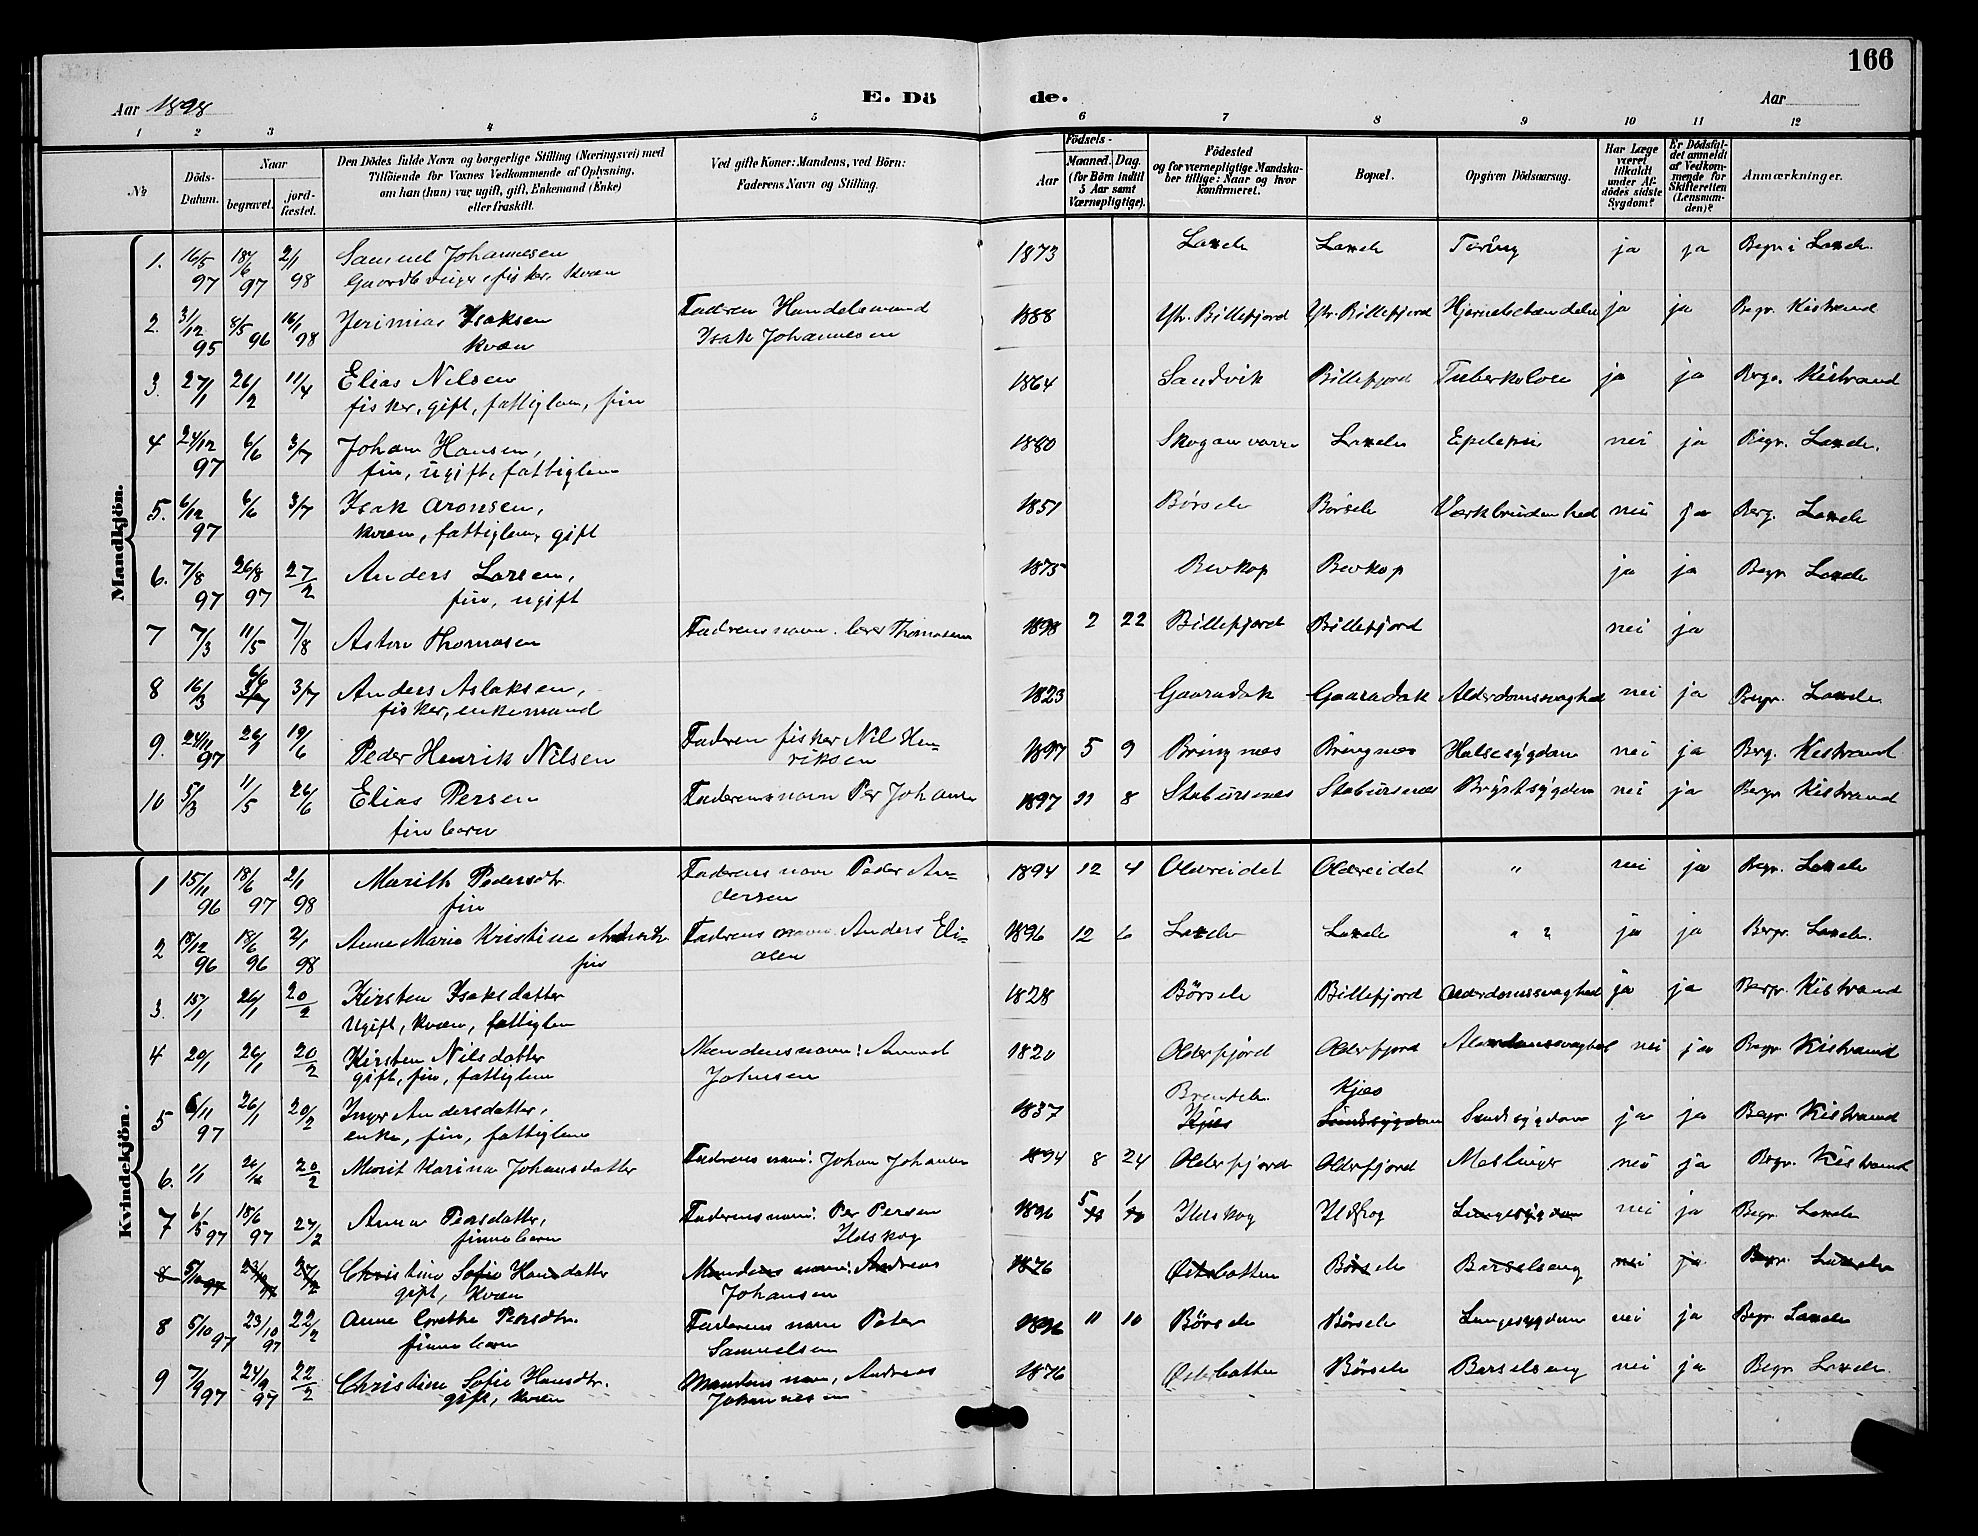 166
Aar 1898
E. Dö
de.
Aar
1 2 3 4 5 6 7 8 9 10 11 12
No
Döds-Datum.
Naar
begravet.
jord-fæstet.
Den Dödes fulde Navn og borgerlige Stilling (Næringsvei) med
Tilföiende for Voxnes Vedkommende af Oplysning,
om han (hun) var ugift, gift, Enkemand (Enke)
eller fraskilt.
Ved gifte Koner: Mandens, ved Börn:
Faderens Navn og Stilling.
Födsels-
Aar
Maaned. Dag.
(for Börn indtil
5 Aar samt
Værnepligtige).
Födested
og for værnepligtige Mandska-
ber tillige: Naar og hvor
konfirmeret.
Bopæl.
Opgiven Dödsaarsag.
Har Læge
været
tilkaldt
under Af-
dödes sidste
Sygdom?
Er Dödsfal-
det anmeldt
af Vedkom-
mende for
Skifteretten
(Lensman-
den)?
Anmærkninger.
Mandkjön.
1. 16/5 97 18/6 97 2/1 98 Samuel Johannesen 1873 Laxelv Laxelv Tæring ja ja Begr. i Laxelv
Gaardbruger, fisker, kvæn
2. 31/12 95 8/5 96 16/1 98 Jerimias Isaksen Faderen Handelsmand 1888 Ytr. Billefjord Ytr. Billefjord ja ja Begr. Kistrand
kvæn Isak Johannesen
3. 27/1 26/2 11/4 Elias Nilsen 1864 Sandvik Billefjord Tuberkolose ja ja Begr. Kistrand
fisker, gift, fattiglem, fin
4 24/12 97 6/6 3/7 Johan Hansen, 1880 Skoganvarre Laxelv Epelepsi nei ja Begr. Laxelv.
fin, ugift, fattiglem
5. 6/12 97 6/6 3/7 Isak Aronsen, 1851 Børselv Børselv Værkbrudenhed nei ja Begr. Laxelv
kvæn, fattiglem, gift
6. 7/8 97 26/8 97 27/2 Anders Larsen, 1875 Bevkop Bevkop ja ja Begr. Laxelv
fin, ugift
7 7/3 11/5 7/8 Aston Thomasen Fadrens navn. Thomasen 1898 2 22 Billefjord Billefjord nei ja
8 16/3 6/6 3/7 Anders Aslaksen, 1823 Gaaradak Gaaradak Alderdomssvaghed nei ja Begr. Laxelv
fisker, enkemand
9. 24/11 97 26/1 19/6 Peder Henrik Nilsen Faderen fisker Nil Hen- 1897 5 9 Bringnæs Bringnæs Halsesygdom nei ja Begr. Kistrand
riksen
10 5/3 11/5 26/6 Elias Persen Faderens navn Per Johansen 1897 11 8 Stabursnæs Stabursnæs Brystsygdom nei ja Begr. Kistrand
fin barn
Kvindekjön.
1 15/11 96 18/6 97 2/1 98 Marith Pedersdtr. Faderens navn Peder An- 1894 12 4 Oldereidet Oldereidet " nei ja Begr. Laxelv
fin dersen
2 18/12 96 18/6 96 2/1 98 Anne Marie Kristine Andersdtr Fadrens navn. Anders Eli- 1896 12 6 Laxelv Laxelv " " ja ja Begr. Laxelv.
fin
3. 15/1 26/1 20/2 Kirsten Isaksdatter 1828 Børselv Billefjord Alderdomssvaghed ja ja Begr. Kistrand
Ugift, kvæn, fattiglem
4 20/1 26/1 20/2 Kirsten Nilsdatter Mandens navn: Amund 1820 Olderfjord Olderfjord Alderdomssvaghed nei ja Begr. Kistrand
gift, fin, fattiglem Johnsen
Brendelv. Kjæs
5 6/11 97 26/1 20/2 Inger Andersdatter, 1837 Kjæs Sindssygdom Sindssygdom ja ja Begr. Kistrand
enke, fin, fattiglem
6. 1/1 20/2 Marit Karina Johansdatter Faderens navn: Johan Johansen 1894 8 24 Olderfjord Olderfjord Meslinger nei ja Begr. Kistrand
7 6/5 97 18/6 97 27/2 Anna Persdatter, Faderens navn: Per Persen 1896 5 Ildskog Ildskog Lungesygdom nei ja Begr. Laxelv
finne barn Ildskog
8 5/10 97 23/10 97 27/2 Christine Sofie Hansdatter Mandens navn: Andreas 1876 Østerbotten Børselv Barselseng nei ja Begr. Laxelv
gift, kvæn Johansen
8 5/10 97 23/10 97 22/2 Anne Grethe Persdtr. Faderens navn Peter 1896 11 10 Børselv Børselv Lungesygdom nei ja Begr. Laxelv
finne barn Samuelsen
9 7/9 97 24/9 97 22/2 Christine Sofie Hansdtr. Mandens navn, Andreas 1876 Østerbotten Børselv Barselseng nei ja Begr. Laxelv
gift, kvæn Johannesen